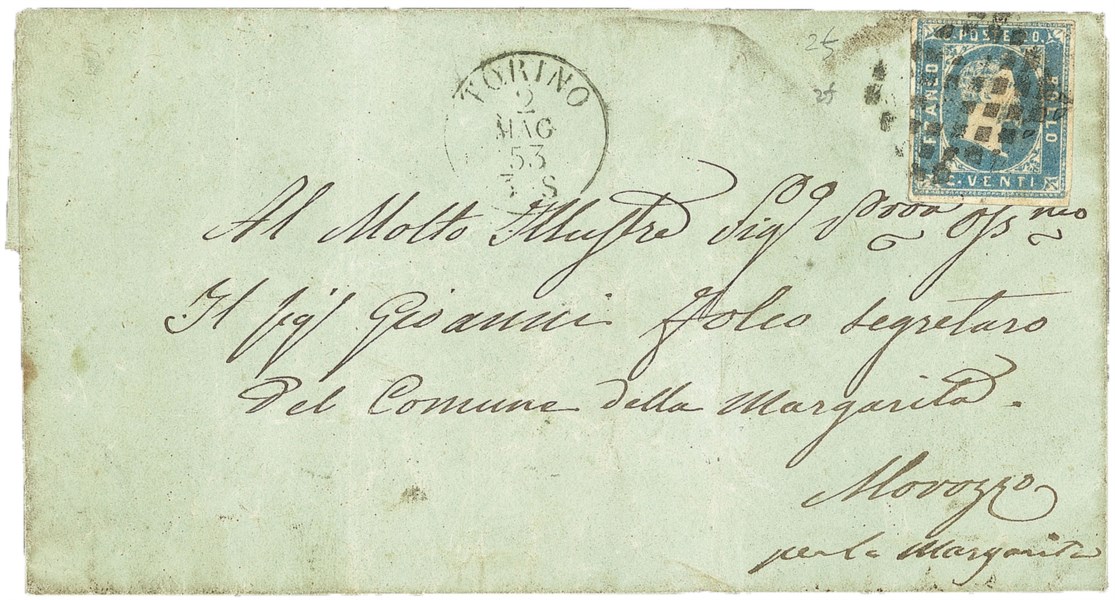 TORINO
2
MAG
53
3 S
25
25
POSTE
FRANCO
BOLLO
C. VENTI
Al Molto Illustre Sig.
Il Sig. Gioanni Tolco segretaro
del Comune della Margarita.
Morozzo
per la Margarita